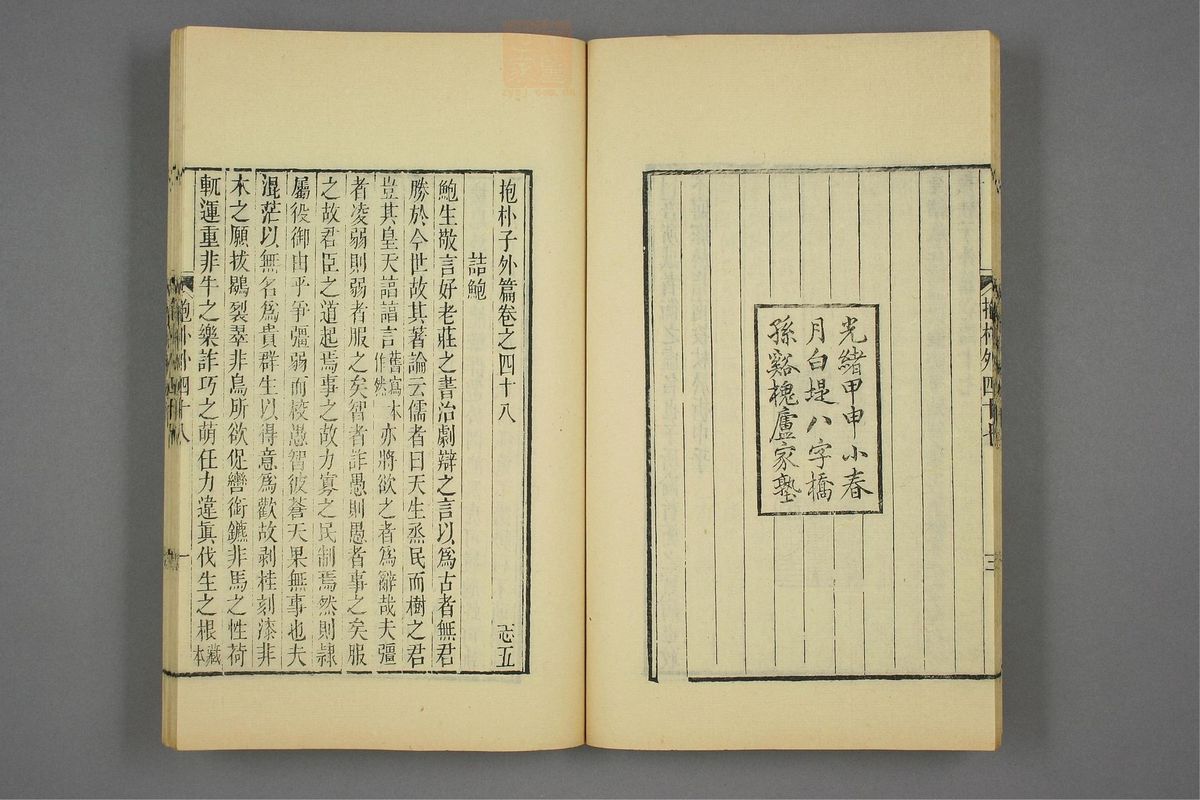 抱朴外四十七
三
光緒甲申小春
月白堤八字橋
孫谿槐廬家塾
抱朴子外篇卷之四十八 志五
詰鮑
鮑生敬言好老莊之書治劇辯之言以爲古者無君
勝於今世故其著論云儒者曰天生烝民而樹之君
豈其皇天諄諄言舊寫本作然亦將欲之者爲辭哉夫彊
者凌弱則弱者服之矣智者詐愚則愚者事之矣服
之故君臣之道起焉事之故力寡之民制焉然則隷
屬役御由乎爭彊弱而校愚智彼蒼天果無事也夫
混茫以無名爲貴群生以得意爲歡故剥桂刻漆非
木之願拔鶡裂翠非鳥所欲促轡銜鑣非馬之性荷
軏運重非牛之樂詐巧之萌任力違眞伐生之根藏本
抱朴外四十八
一